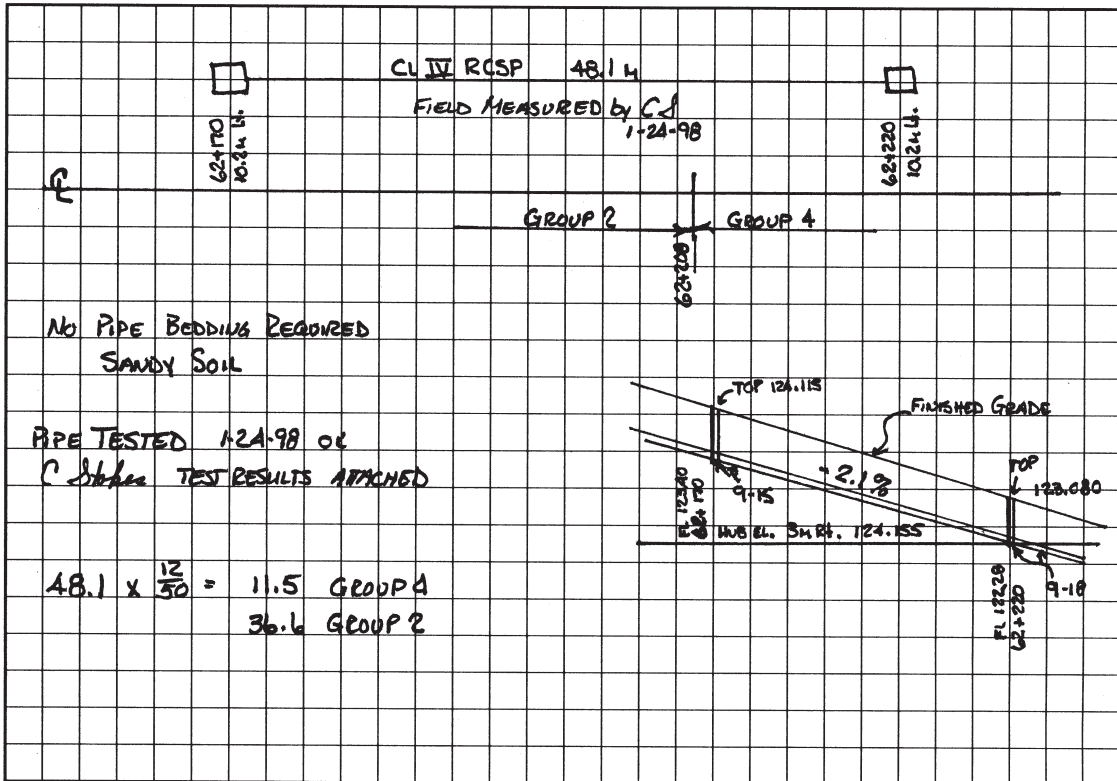 CL IV RCSP 48.1 M
FIELD MEASURED by CS
1-24-98
62+170
10.2M Lt.
62+220
10.2M Lt.
℄
GROUP 2
GROUP 4
62+208
NO PIPE BEDDING REQUIRED
SANDY SOIL
PIPE TESTED 1-24-98 OK
C Stokes TEST RESULTS ATTACHED
48.1 x 12/50 = 11.5 GROUP 4
36.6 GROUP 2
TOP 124.115
FINISHED GRADE
-2.1%
TOP
123.080
9-15
62+170
HUB EL. 3M Rt. 124.155
9-18
FL 122.28
62+220